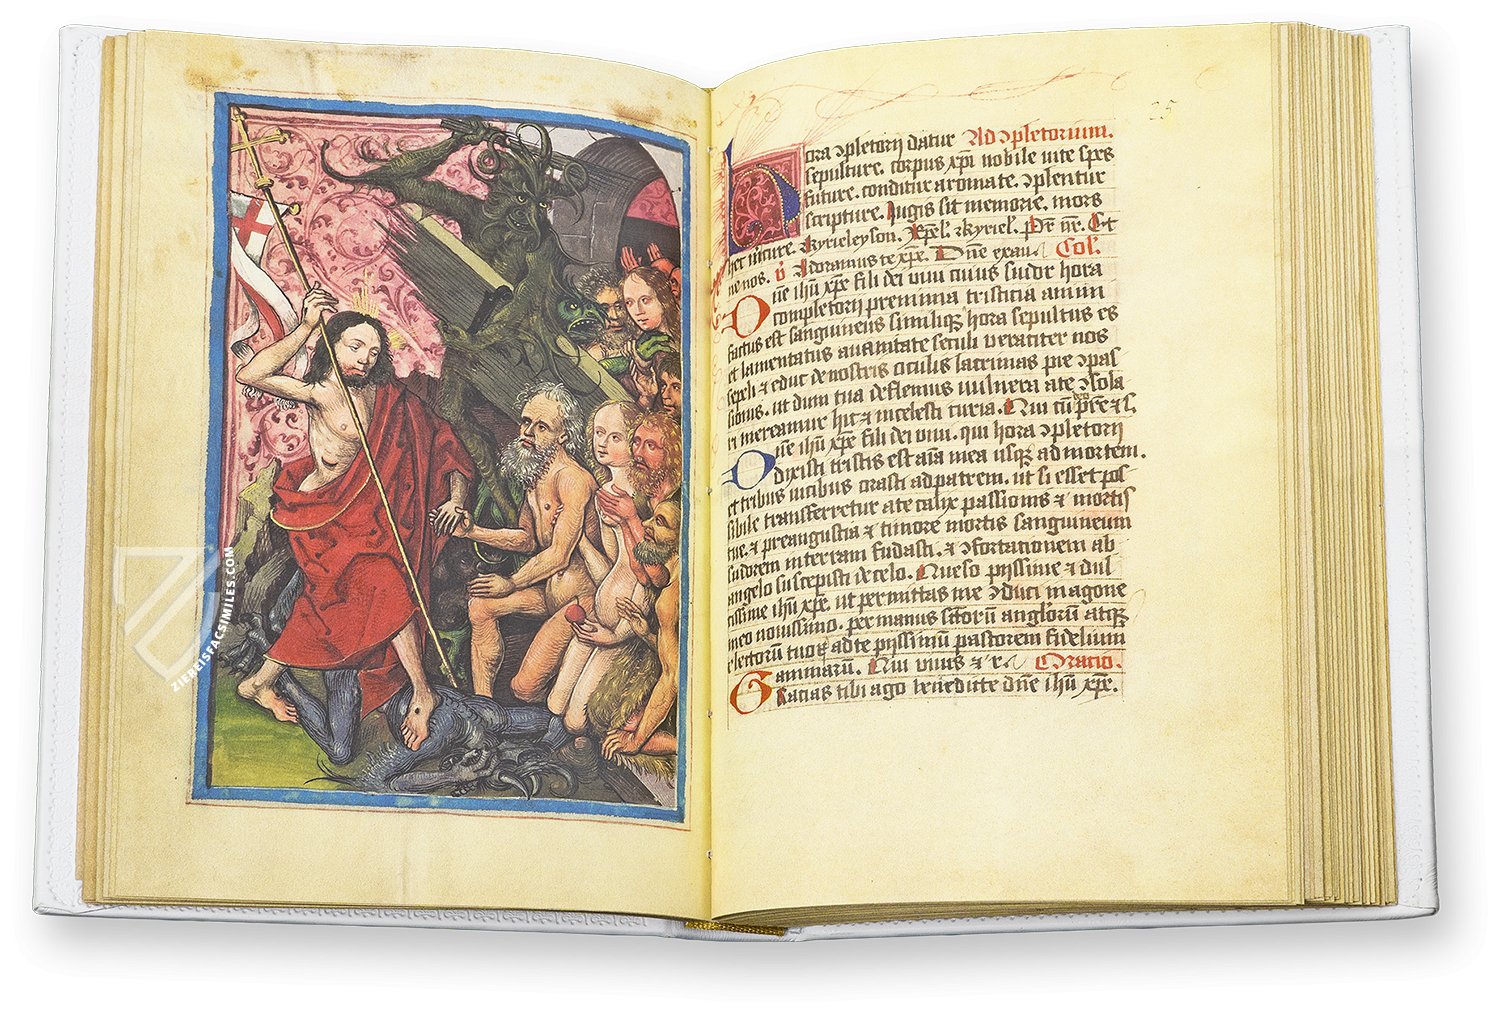 ZIEREISFACSIMILES.COM
25
Hora ɔpletorij datur Ad ɔpletorium.
sepulture. corpus xp̄i nobile uite spes
future. conditur aromate. ɔplentur
scripture. Jugis sit memorie. mors
hec m̄ cure. kyrieleyson. Xp̄el. kyriel. Pr̄ nr̄. Et
ne nos. v̄ Adoramus te xp̄e. Dn̄e exau Col.
Dn̄e ih̄u xp̄e fili dei uiui cuius sudor hora
completorij p nimia tristicia animi
factus est sanguineus similiqꝫ hora sepultus es
et lamentatus a seculi ueraciter nos
sepeli ⁊ educ de nostris oculis lacrimas pie ɔpas
sionis. ut dum tua deflemus uulnera a te ɔsola
ri mereamur hic ⁊ in celesti curia. Qui cū pr̄e ⁊ s.
Dn̄e ih̄u xp̄e fili dei uiui. qui hora ɔpletorij
dixisti tristis est aīa mea usqꝫ ad mortem.
et tribus uicibus orasti ad patrem. ut si esset pos
sibile transferretur a te calix passionis ⁊ mortis
tue. ⁊ pre angustia ⁊ timore mortis sanguineum
sudorem in terram fudasti. ⁊ ɔfortationem ab
angelo suscepisti de celo. Queso pijssime ⁊ dul
cissime ih̄u xp̄e. ut permittas me ɔduci in agone
meo nouissimo. per manus sc̄torū anglorum atqꝫ
electorū tuoꝝ ad te pijssimū pastorem fidelium
animarū. Qui uiuis ⁊ r. Oratio.
Gracias tibi ago benedicte dn̄e ih̄u xp̄e.